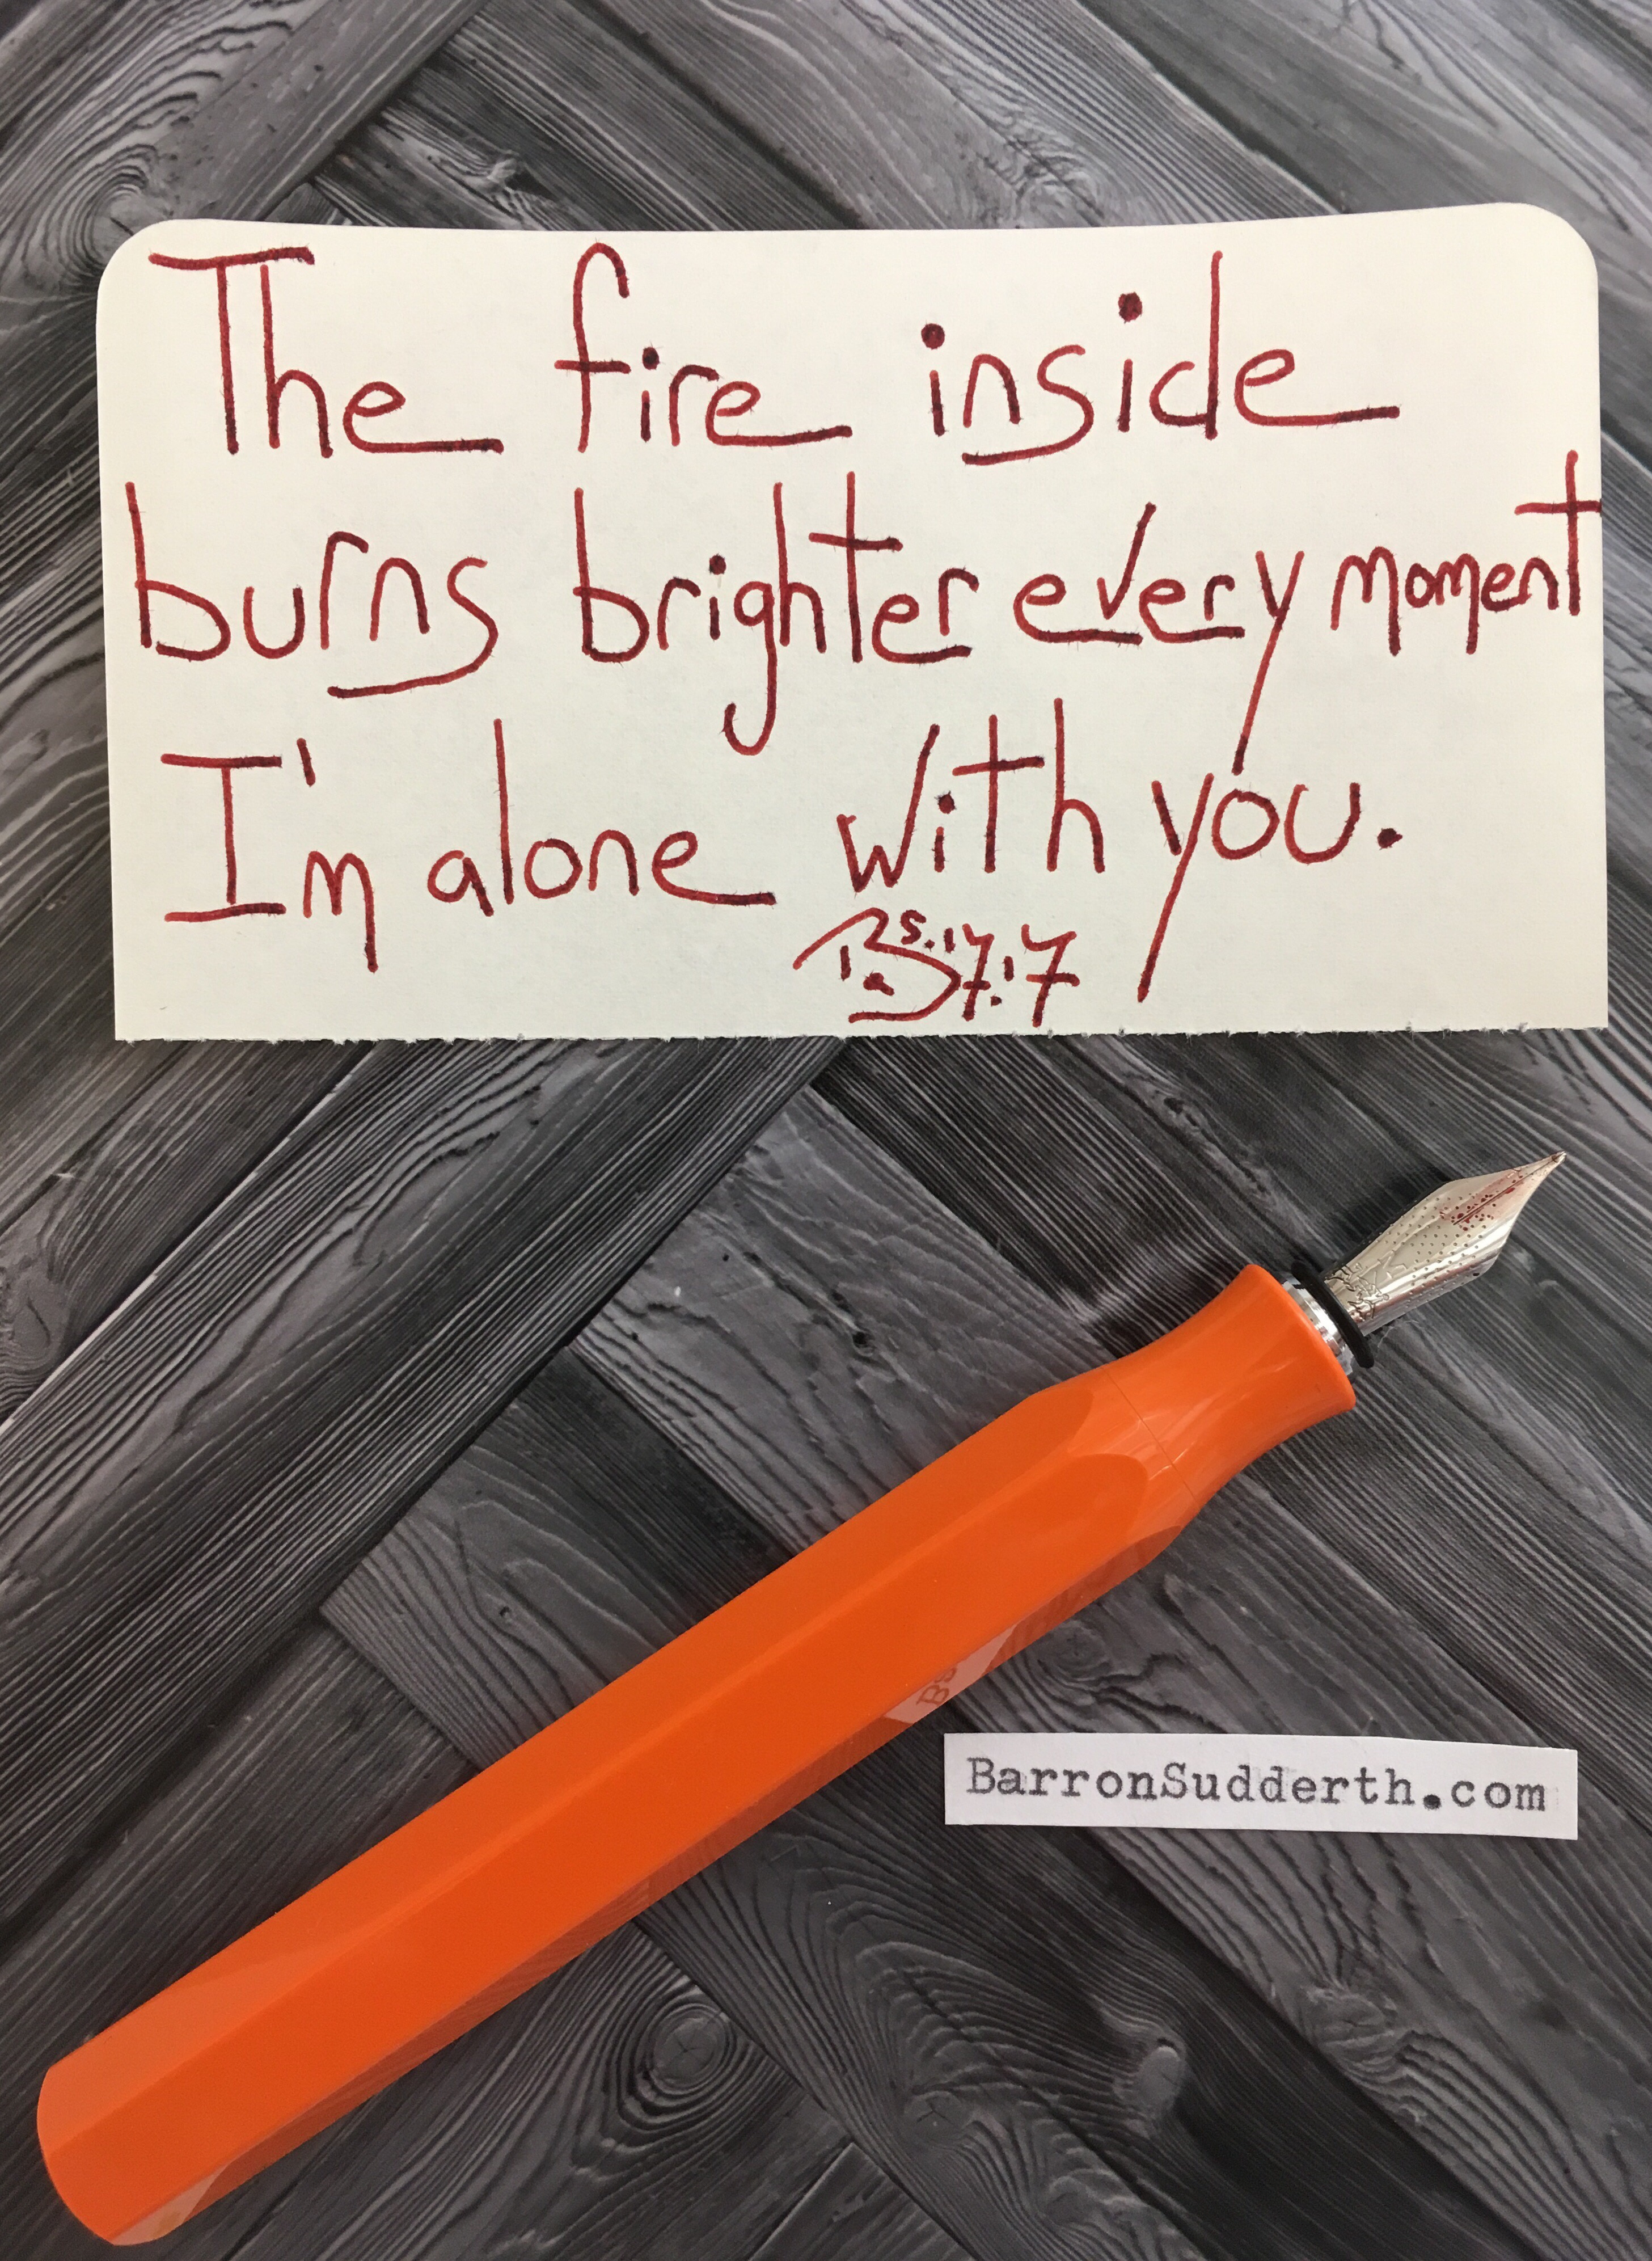 The fire inside
burns brighter every moment
I'm alone with you.
BarronSudderth.com